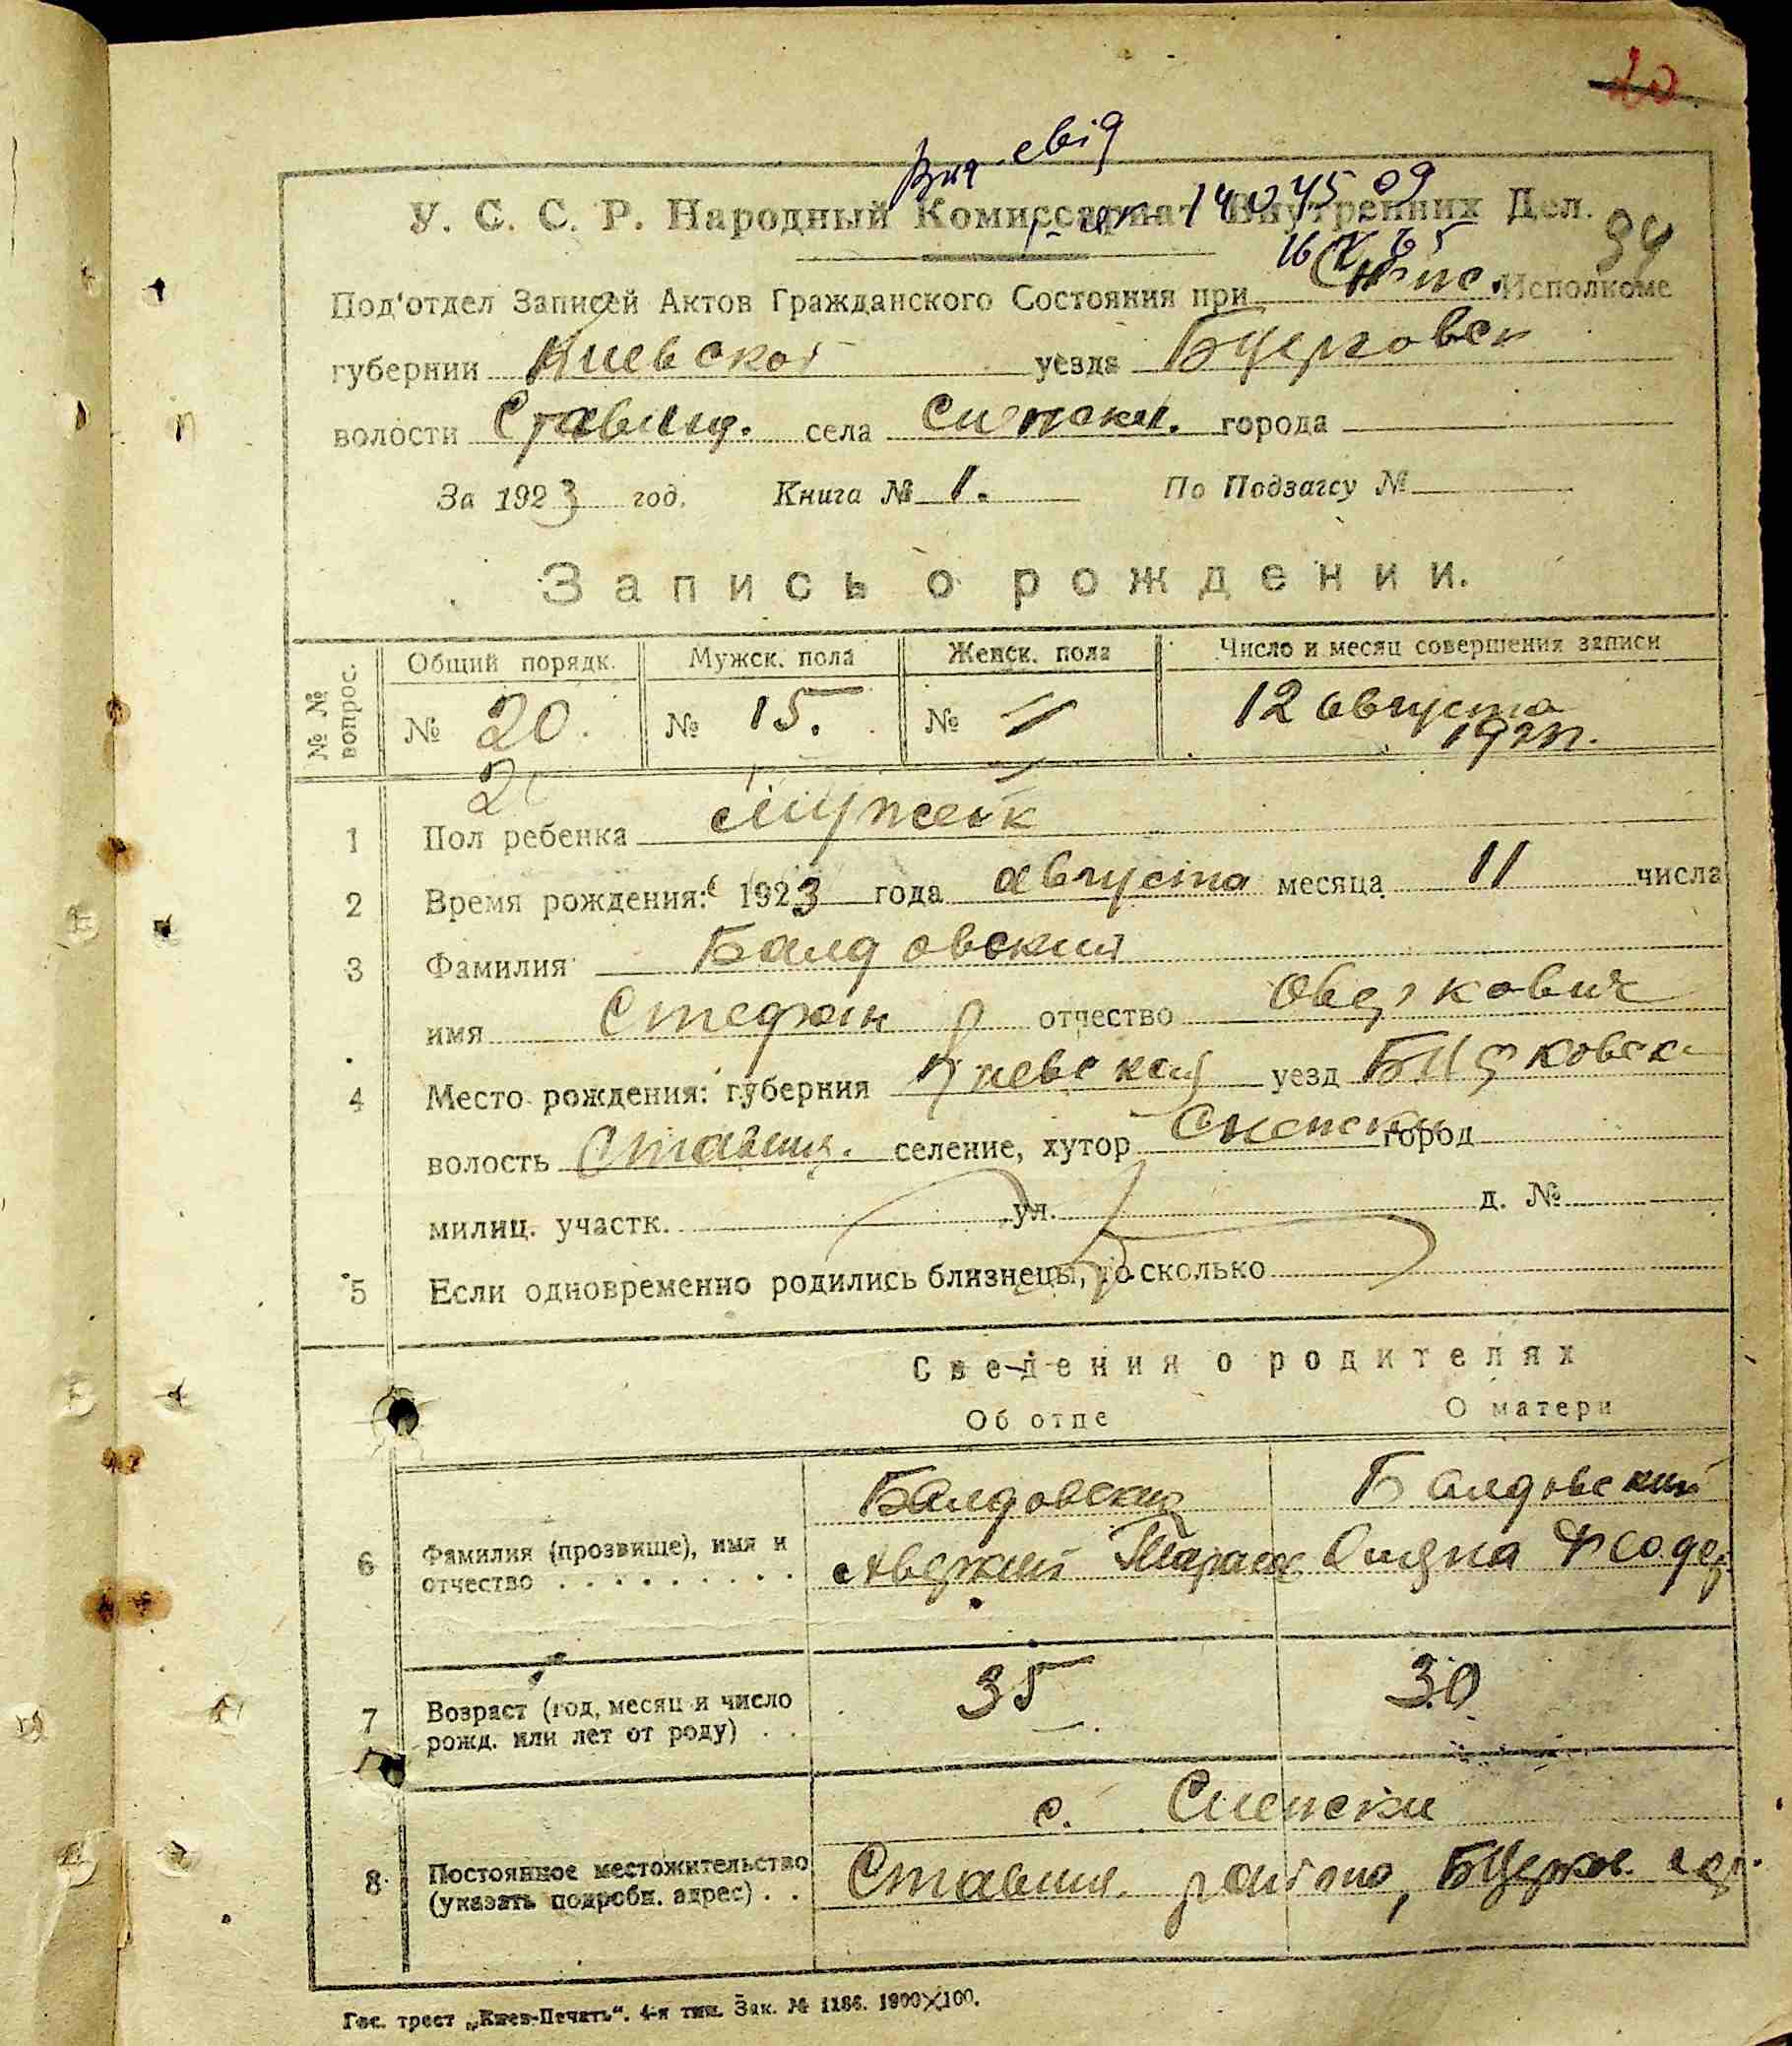 20
Вид. свід
1-ик 1407509
16 V 65
94
У. С. С. Р. Народный Комиссариат Внутренних Дел.
Под'отдел Записей Актов Гражданского Состояния при Исполкоме
губернии Киевской уезда БЦерковск
волости Ставищ. села города
За 1923 год. Книга № 1. По Подзагсу №
Запись о рождении.
№ № вопрос.
Общий порядк. Мужск. пола Женск. пола Число и месяц совершения записи
№ 20. № 15. № 12 августа
1 Пол ребенка Мужск
2 Время рождения: 1923 года августа месяца 11 числа
3 Фамилия Балдовский
имя Стефан отчество Оверкович
4 Место рождения: губерния Киевская уезд БЦерковск
волость Ставищ. селение, хутор город
милиц. участк. ул. д. №
5 Если одновременно родились близнецы, то сколько
Сведения о родителях
Об отце О матери
Балдовский Балдовский
6 Фамилия (прозвище), имя и
отчество Аверкий Тарас Федор
7 Возраст (год, месяц и число
рожд. или лет от роду) 35 30
с.
8 Постоянное местожительство
(указать подробн. адрес) Ставищ. района, БЦерков.
Гос. трест „Киев-Печать“. 4-я тип. Зак. № 1186. 1900×100.